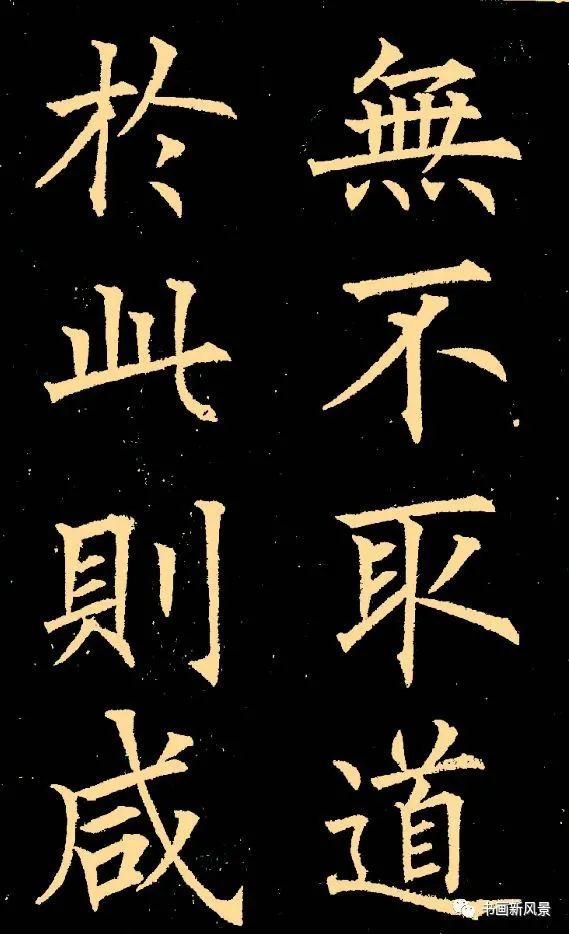 無不取道
於此則咸
书画新风景